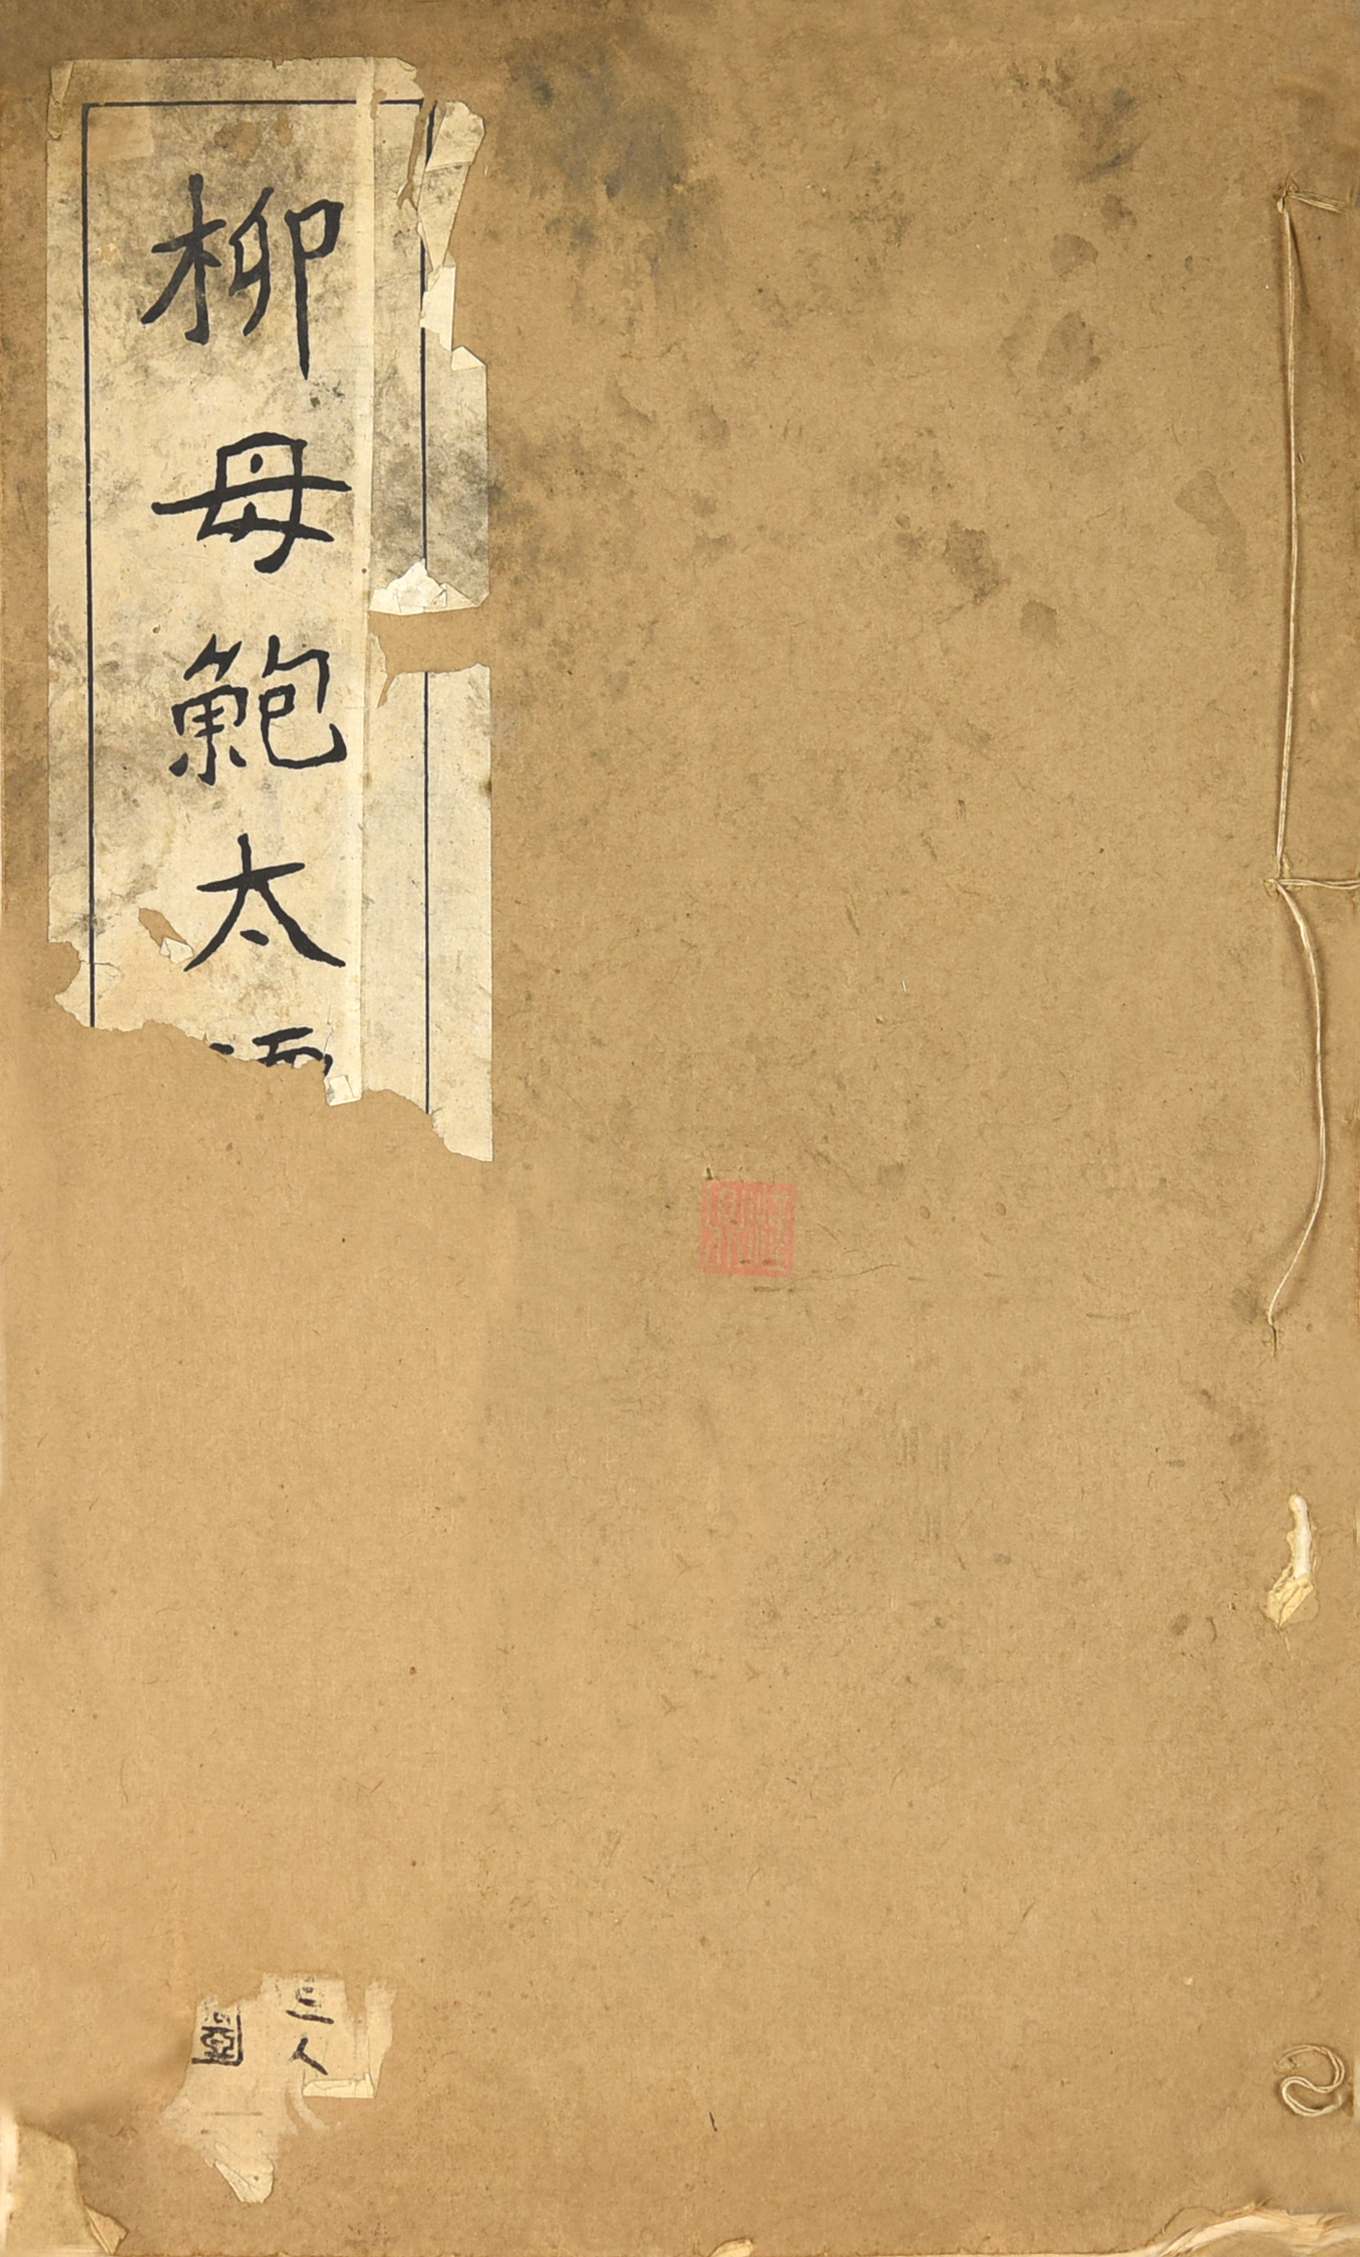 柳母鮑太
三人